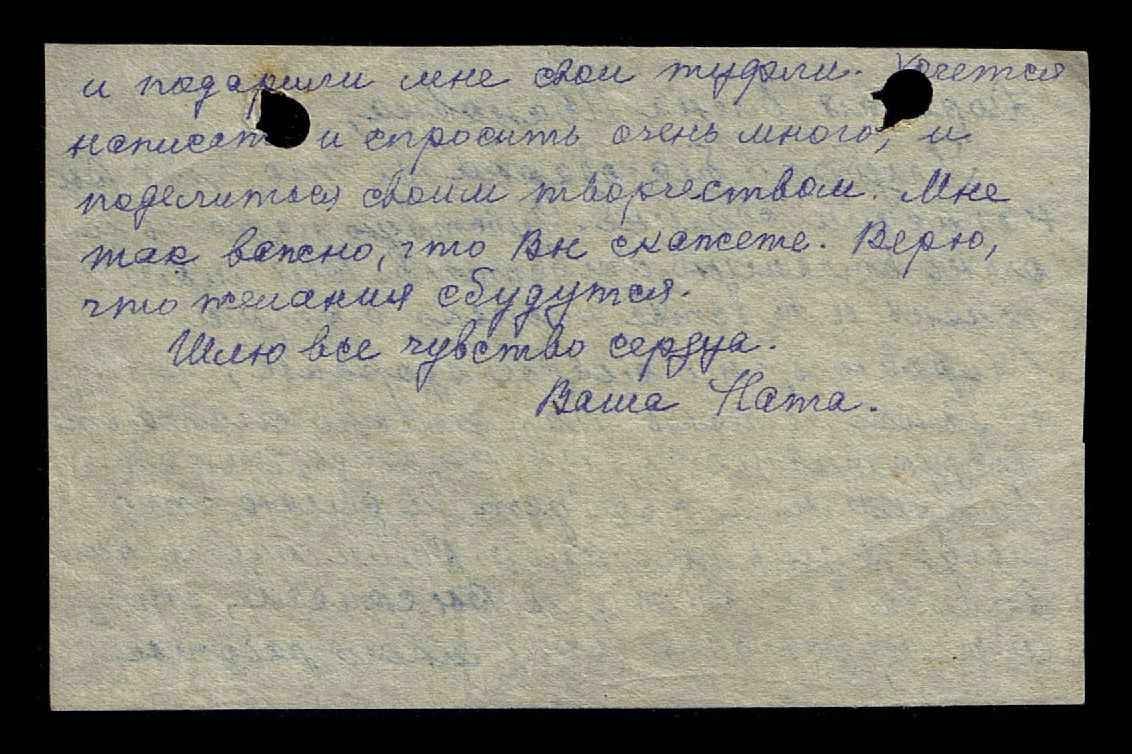 и подарили мне свои туфли. Хочется
написать и спросить очень много, и
поделиться своим творчеством. Мне
так важно, что Вы скажете. Верю,
что желания сбудутся.
Шлю все чувство сердца.
Ваша Ната.